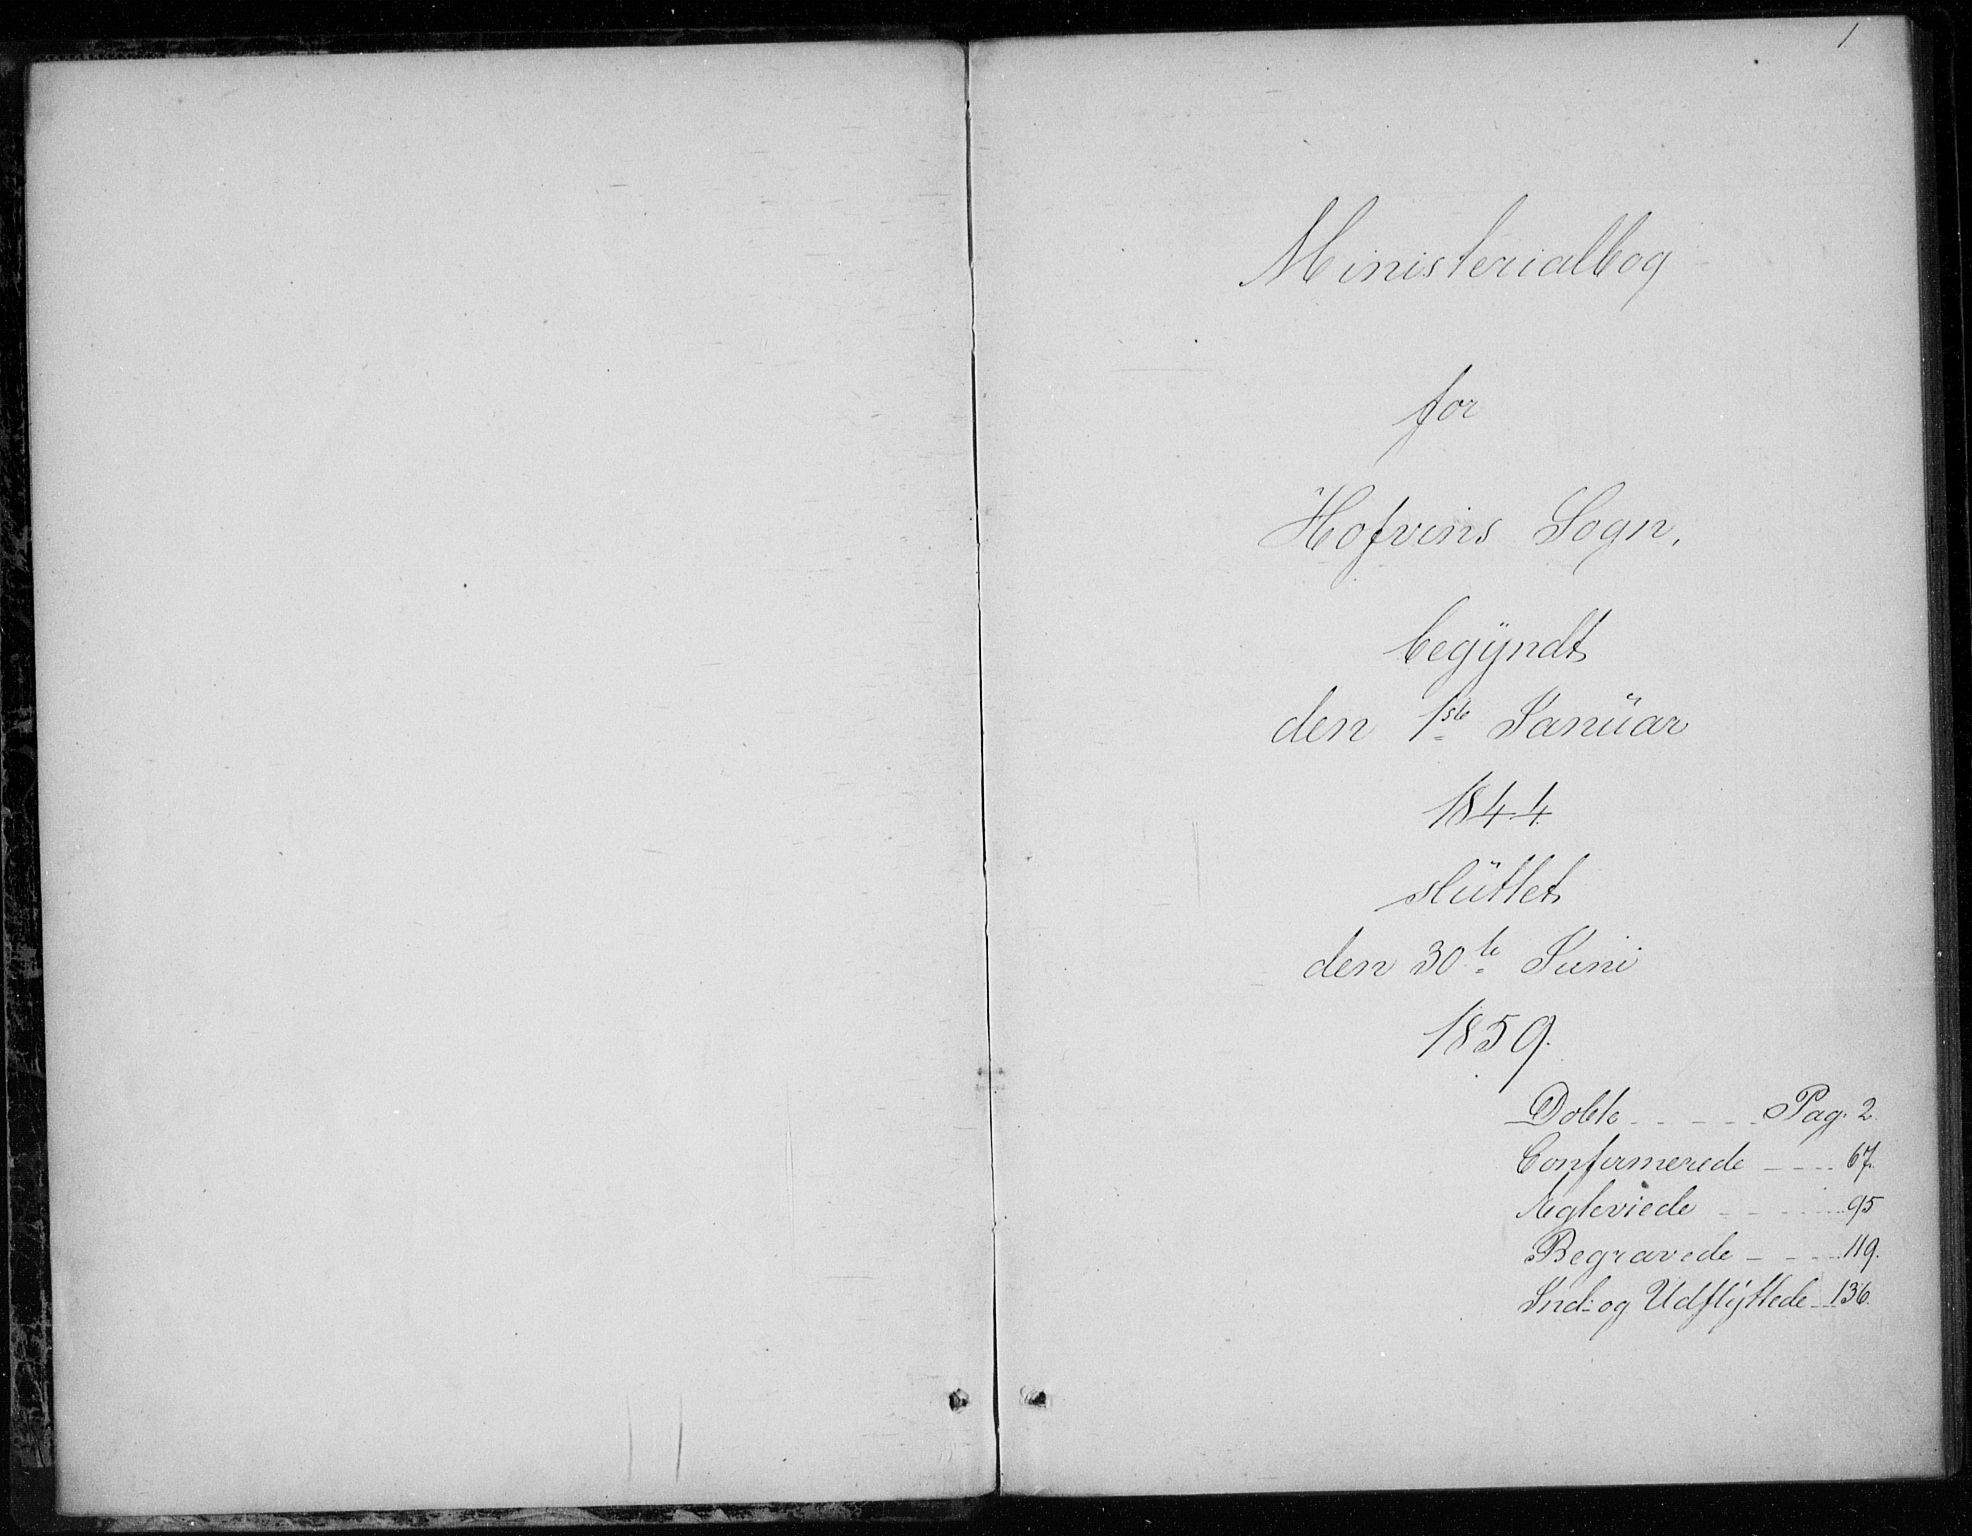 1
Ministerialbog
for
Hofvins Sogn,
begÿndt
den 1ste Janŭar
1844
slŭttet
den 30te Juni
1859.
Döbte - - - - - Pag. 2
Confirmerede - - - - 67.
Ægteviede - - - - - 95
Begravede - - - - 119.
Ind- og Udflÿttede - 136.